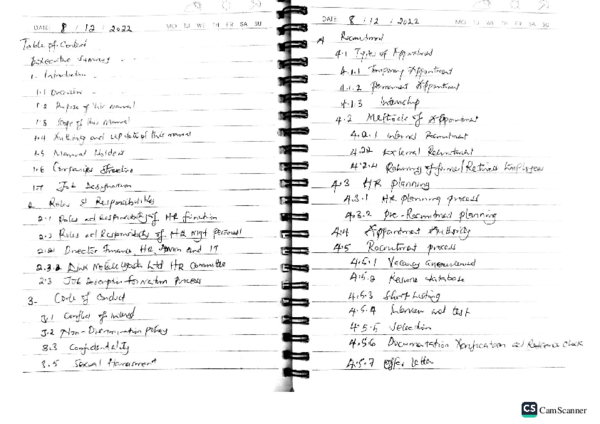 DATE: 8 / 12 / 2022 MO TU WE TH FR SA SU
Table of Content
Executive Summary
1. Introduction
1.1 Overview
1.2 Purpose of this manual
1.3 Scope of this Manual
1.4 and Update of this manual
1.5 Manual Holders
1.6 Companies Structure
1.7 Job Designation
2. Roles & Responsibilities
2.1 Roles and Responsibility of HR function
2.2 Roles and Responsibility of HR Mgt Personnel
2.2.1 Director Finance, HR, Admin and IT
2.2.2 Ltd HR Committee
2.3 Job Description formation Process
3. Code of Conduct
3.1 Conflict of interest
3.2 Non-Discrimination policy
3.3 Confidentiality
3.5 Sexual Harassment
DATE: 8 / 12 / 2022 MO TU WE TH FR SA SU
4 Recruitment
4.1 Types of Appointment
4.1.1 Temporary Appointment
4.1.2 Permanent Appointment
4.1.3 Internship
4.2 Methods of Appointment
4.2.1 Internal Recruitment
4.2.2 External Recruitment
4.2.4 of former/Retirees Employees
4.3 HR Planning
4.3.1 HR planning process
4.3.2 Pre-Recruitment planning
4.4 Appointment Authority
4.5 Recruitment process
4.5.1 Vacancy announcement
4.5.2 Resume database
4.5.3 Short listing
4.5.4 Interview and test
4.5.5 Selection
4.5.6 Documentation Verification and Reference check
4.5.7 offer letter
CS CamScanner